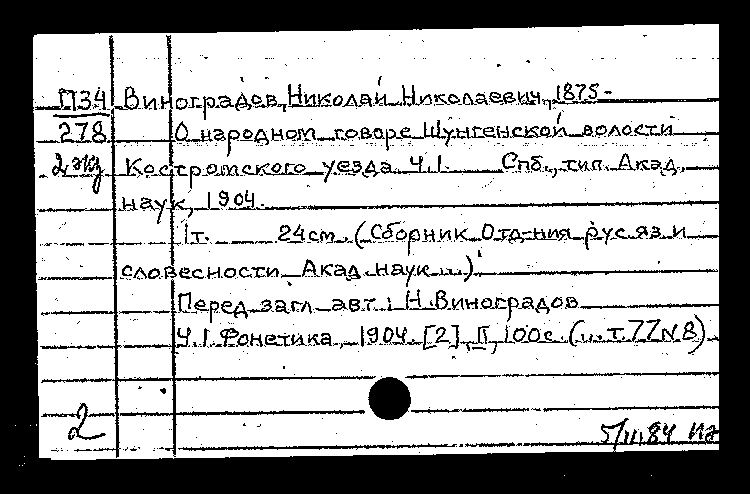 П34 Виноградов, Николай Николаевич, 1875-
278 О народном говоре Шунгенской волости
2 экз Костромского уезда. Ч.1. Спб., тип. Акад.
наук, 1904.
1т. 24см. (Сборник Отд-ния рус яз и
словесности Акад. наук ...)
Перед загл. авт.: Н. Виноградов
Ч.1 Фонетика, 1904. [2], II, 100с. (... т. 77 N 8)
2
5/III 84